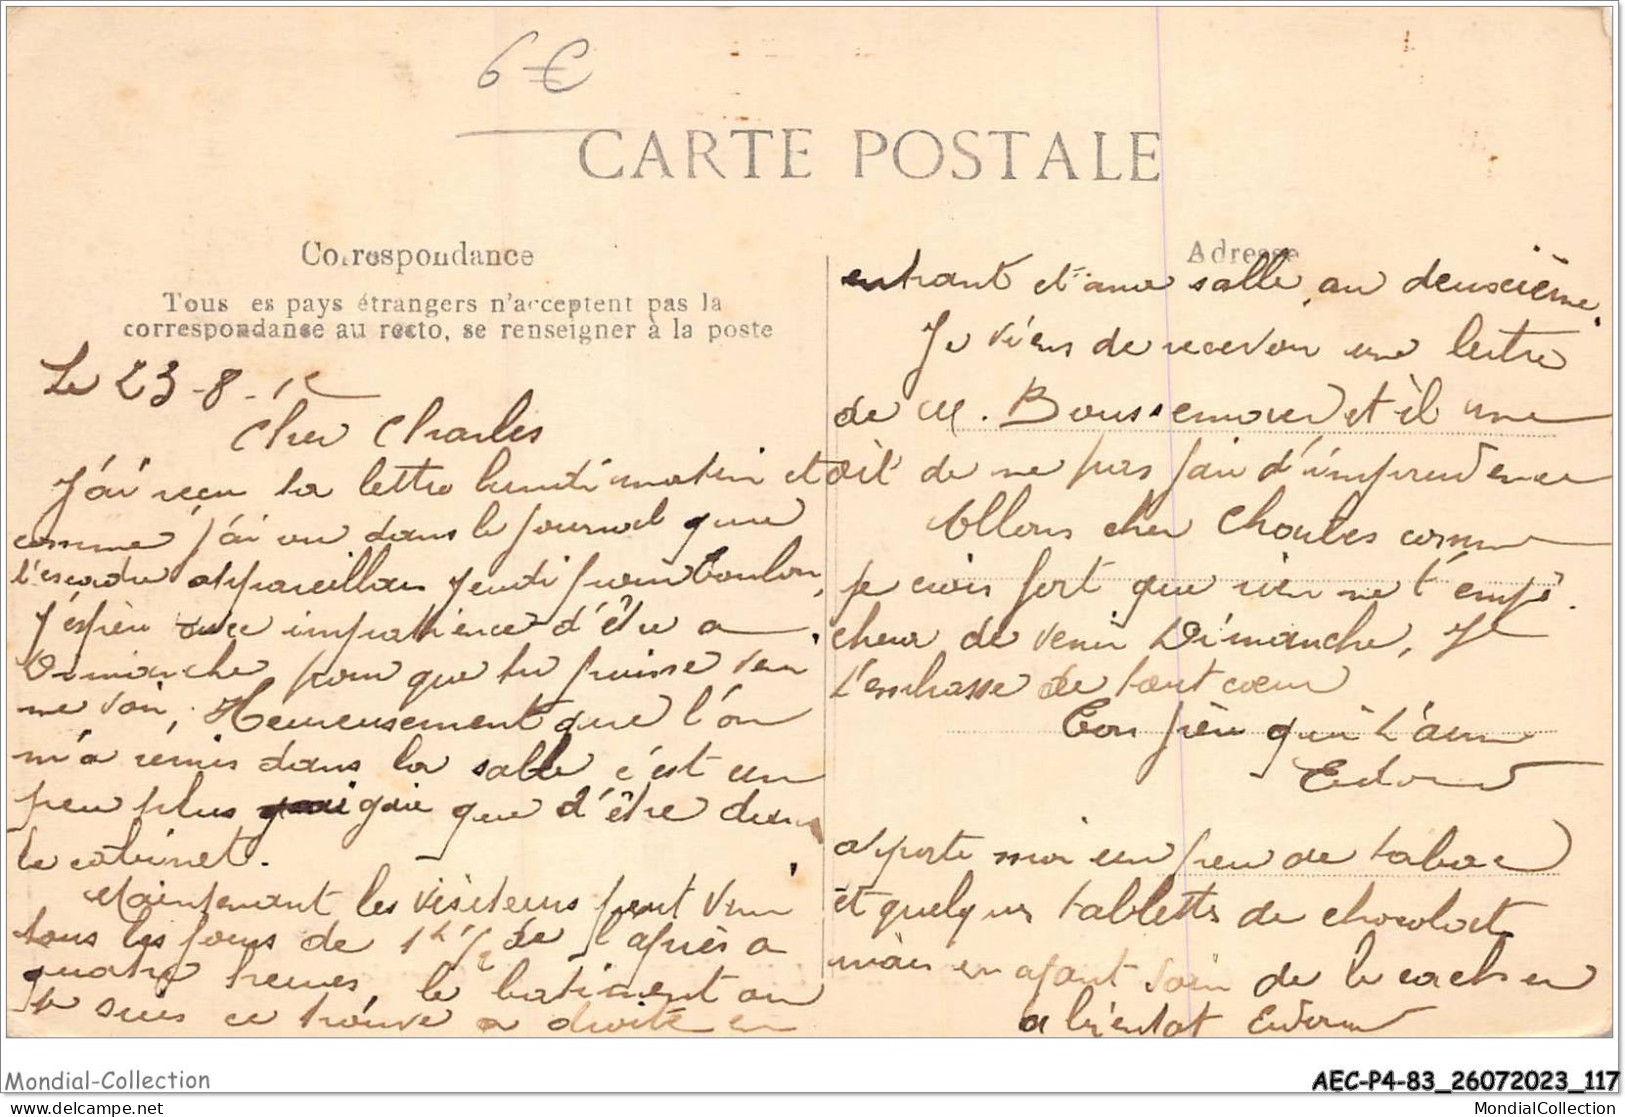 6€
CARTE POSTALE
Correspondance
Tous es pays étrangers n'acceptent pas la
correspondanse au recto, se renseigner à la poste
Le 23-8-12
Cher Charles
J'ai reçu ta lettre lundi matin et
comme j'ai vu dans le journal que
l'escadre appareillais jeudi pour Toulon,
J'éspère avec impatience d'être a
Dimanche pour que tu puisse venir
me voir, Heureusement que l'on
m'a rémis dans la salle c'est un
peu plus gaie que d'être dans
le cabinet.
Maintenant les visiteurs peut venir
tous les jours de 1h 1/2 de l'après a
quatre heures, le batiment ou
je suis ce trouve a droite en
Adresse
entrant et ma salle au deuxième.
Je viens de recevoir une lettre
de M. Boussemaer et il me
dit de ne pas fair d'imprudence
Allons cher Charles comme
je crois fort que rien ne t'empê
chera de venir Dimanche, Je
t'embrasse de tout cœur
Ton frère qui t'aime
Edouard
apporte moi un peu de tabac
et quelques tablettes de chocolat
mais en ayant soin de le cacher
a bientot Edouard
Mondial-Collection
AEC-P4-83_26072023_117
delcampe.net
MondialCollection